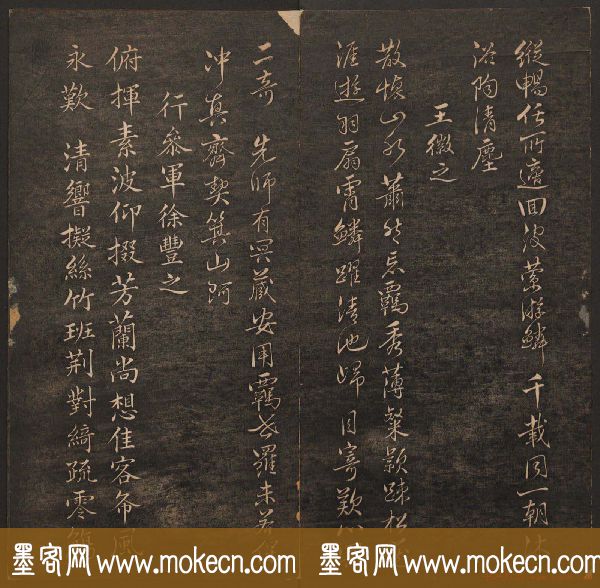 縱暢任所適回波縈游鱗 千載同一朝沐
浴陶清塵
王徽之
散懷山水蕭然忘羈秀薄粲穎踈松
涯遊羽扇霄鱗躍清池歸目寄歎心
二奇 先師有冥藏安用羈世羅未若保
冲真齊契箕山阿
行叅軍徐豐之
俯揮素波仰掇芳蘭尚想佳客希風
永歎 清響擬絲竹班荆對綺疏零觴
墨客网 www.mokecn.com 墨客网 www.mokecn.com